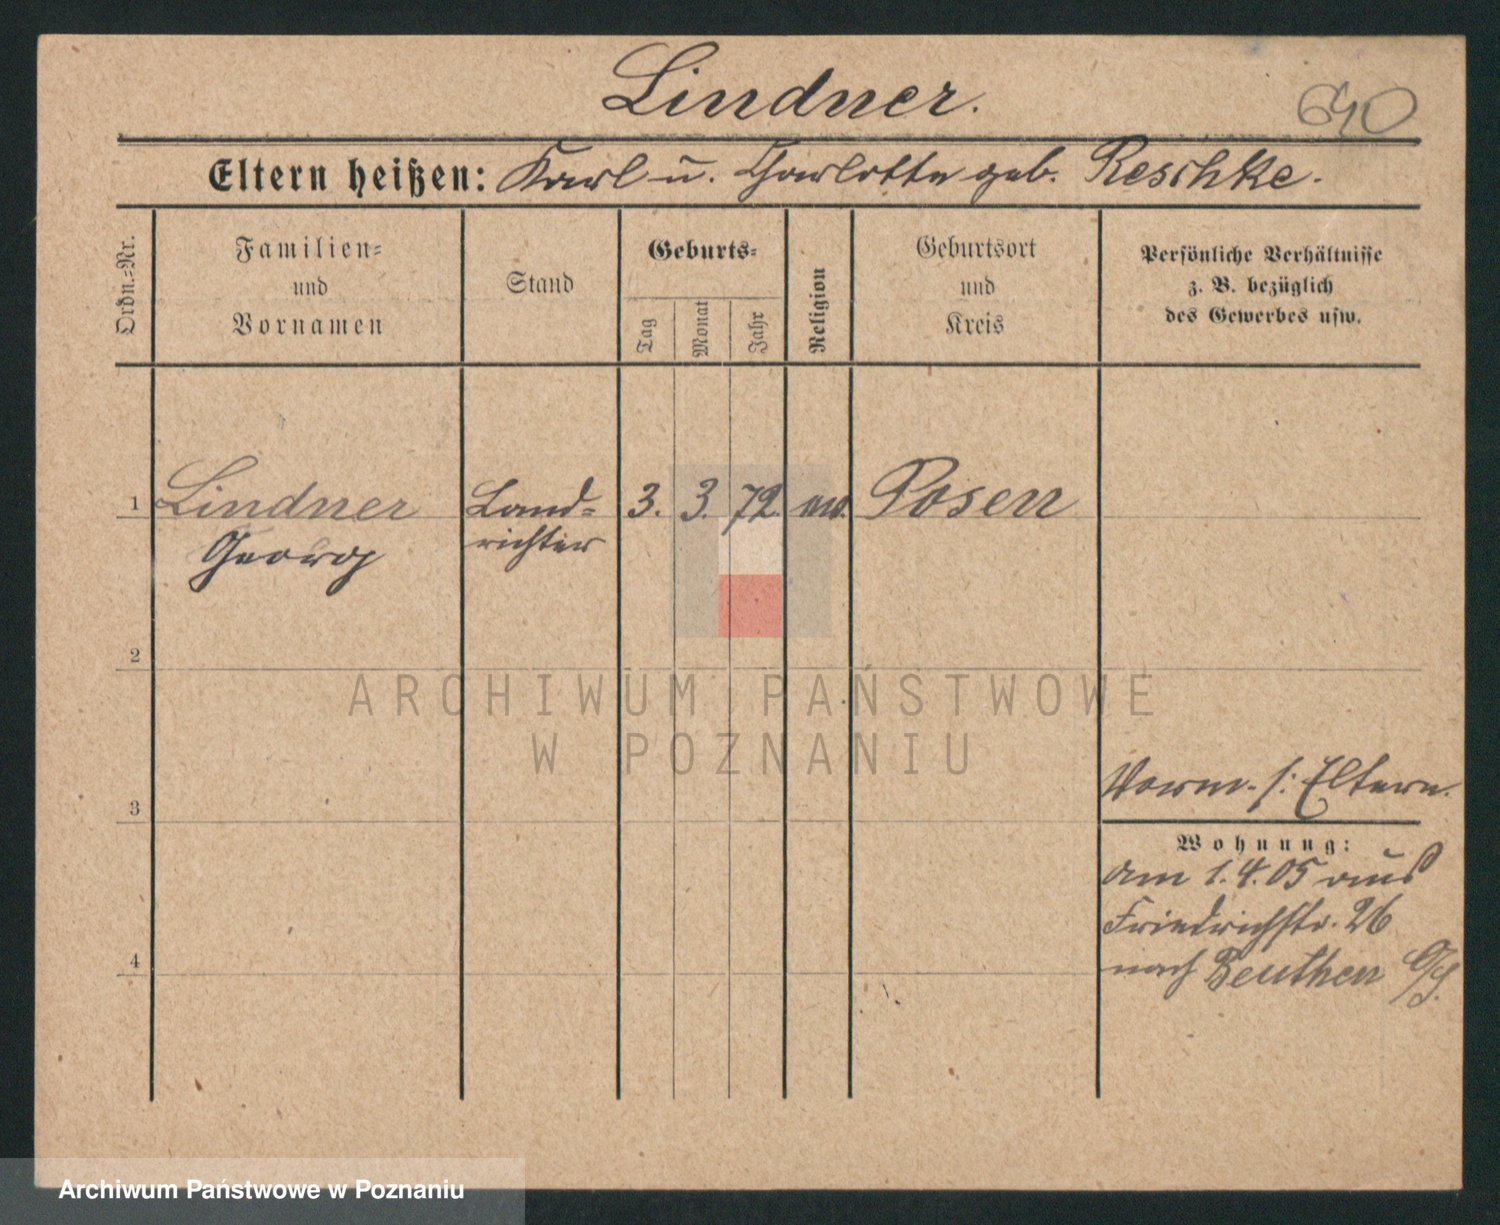 Lindner.
640
Eltern heißen: Karl u. Charlotte geb. Reschke.
Ordn.-Nr.
Familien-
und
Vornamen
Stand
Geburts-
Tag
Monat
Jahr
Religion
Geburtsort
und
Kreis
Persönliche Verhältnisse
z. B. bezüglich
des Gewerbes usw.
1 Lindner Land- 3. 3. 72. Posen
Georg richter
2
ARCHIWUM PAŃSTWOWE
W POZNANIU
Eltern.
3
Wohnung:
am 1.4.05 aus
Friedrichstr. 26
4
nach Beuthen O/S.
Archiwum Państwowe w Poznaniu